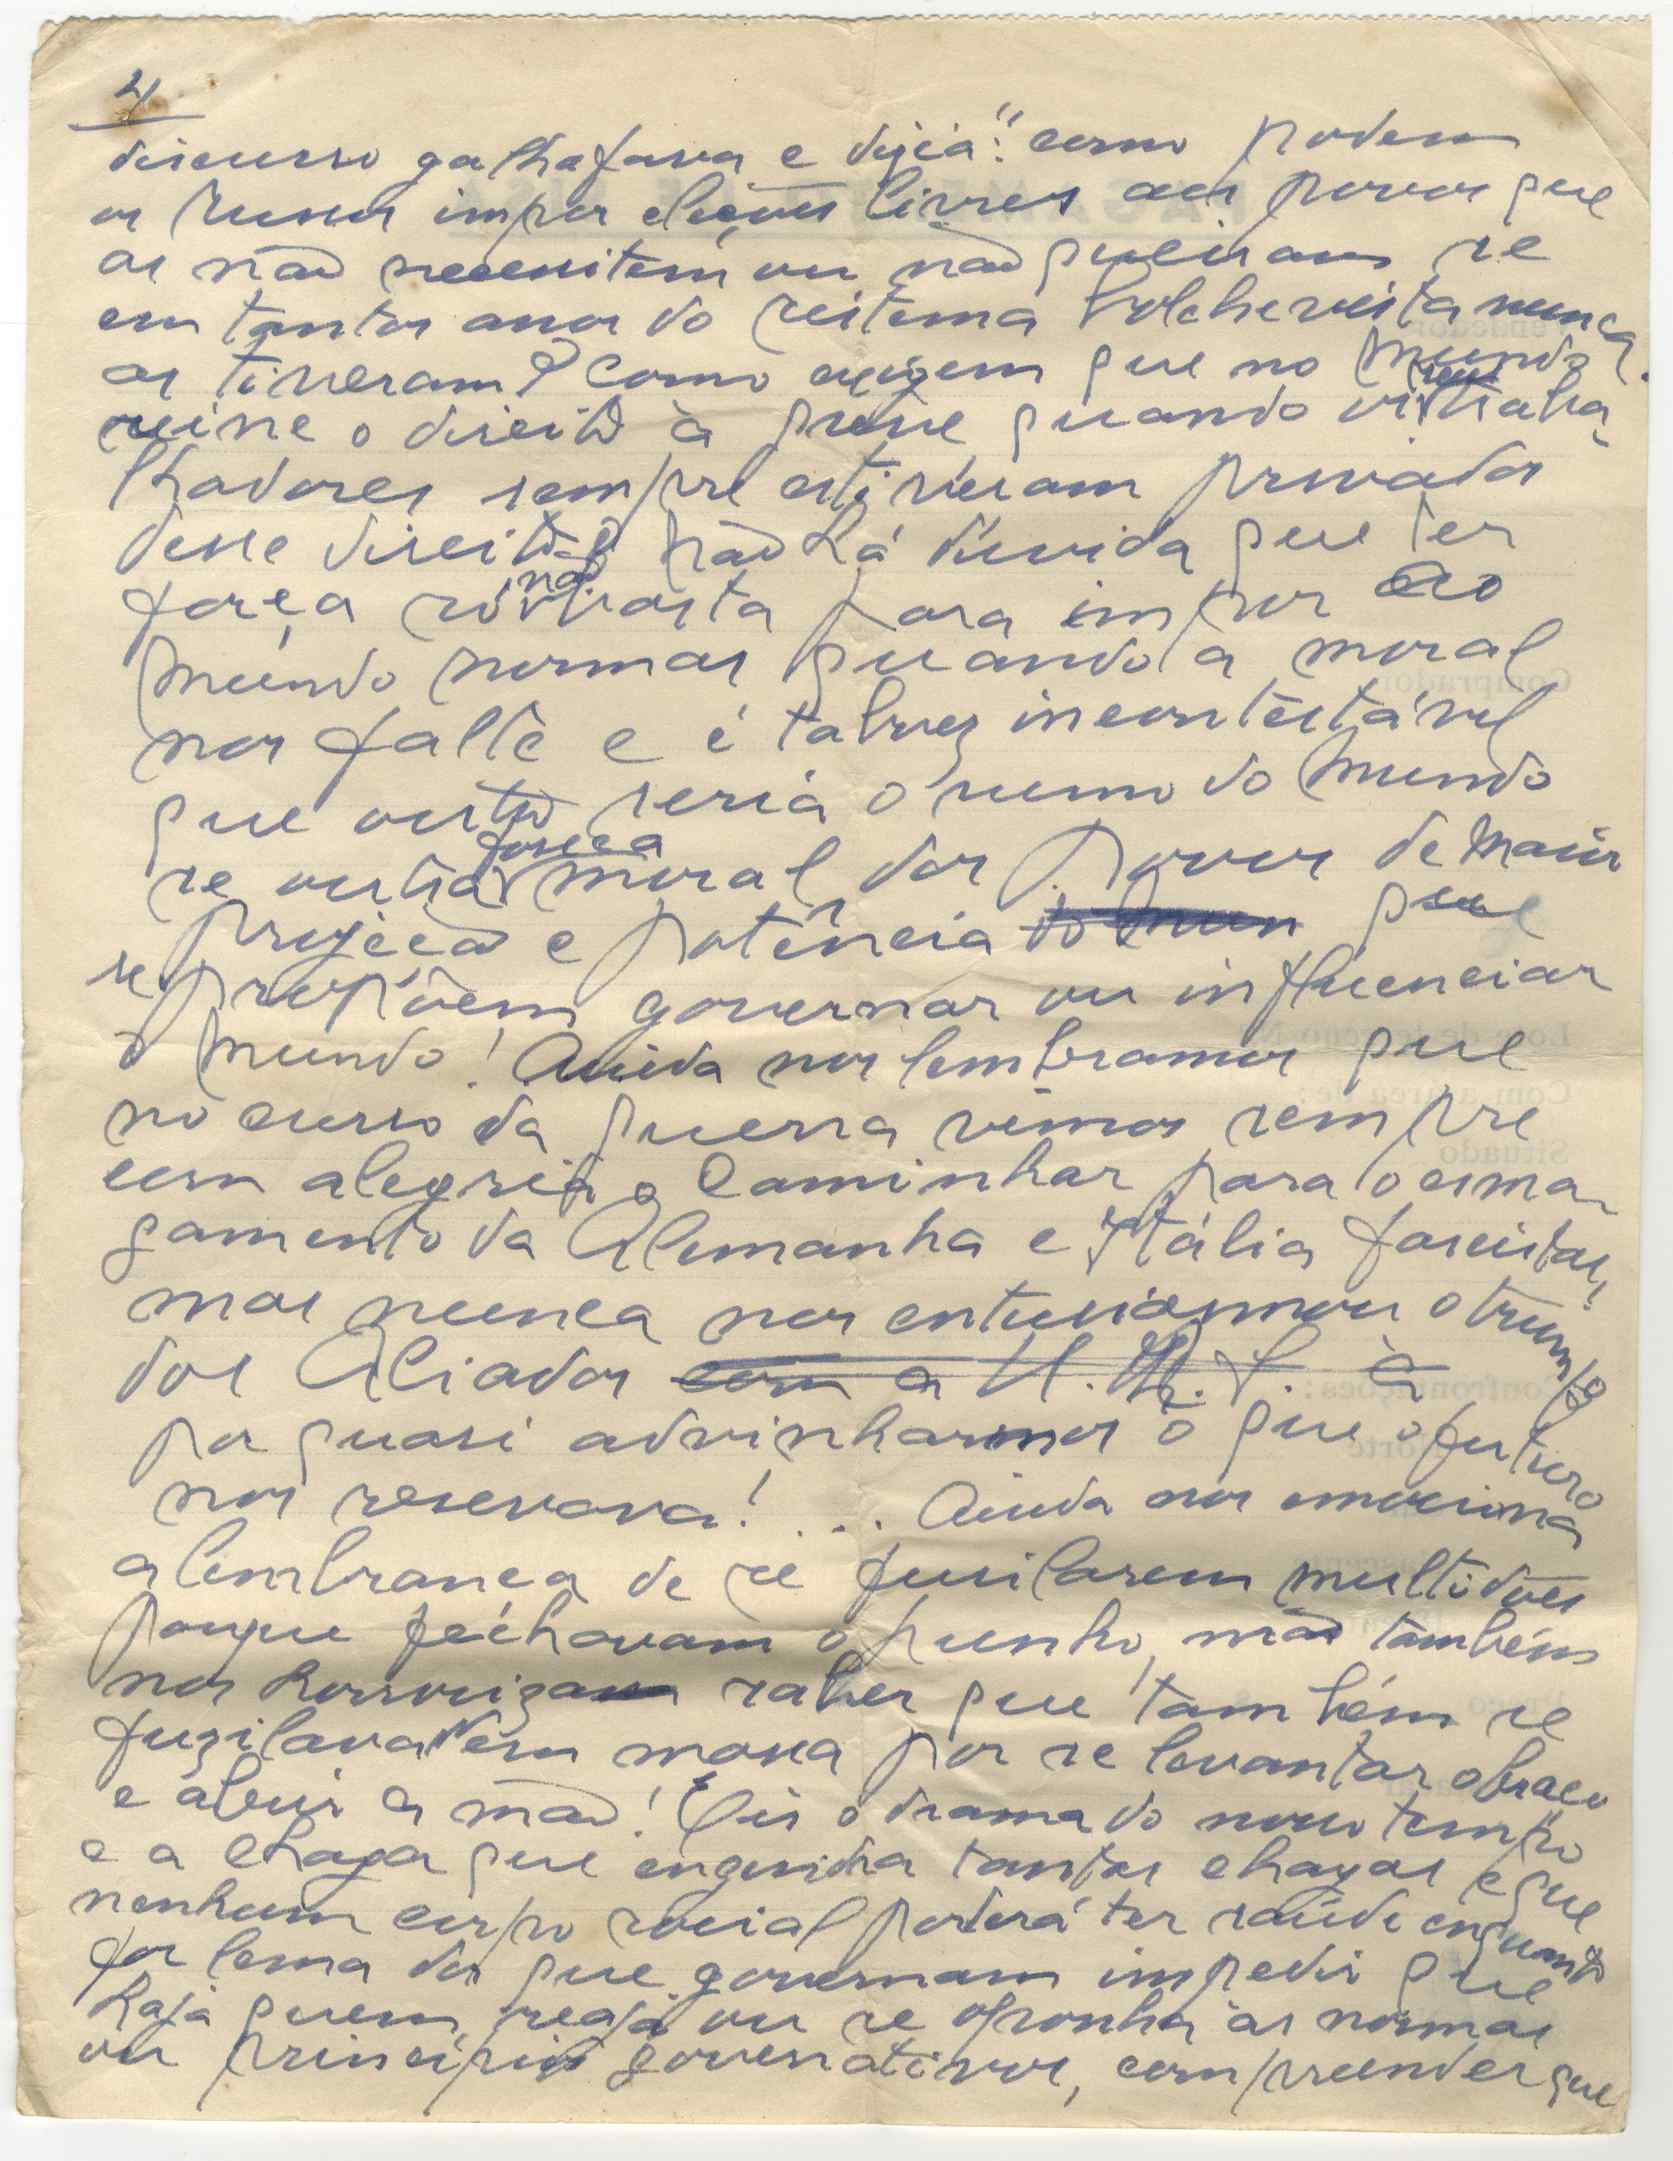 4
discurso galhofava e dizia: "como podem
os russos impor eleições livres aos povos que
as não necessitem ou não queiram se
em tantos anos do sistema bolchevista nunca
as tiveram? Como exigem que no mundo
reine o direito à greve quando os seus traba-
lhadores sempre estiveram privados
desse direito? Não há dúvida que ter
força só não basta para impor ao
mundo normas quando a moral
nos falte e é talvez incontestável
que outro seria o rumo do mundo
se outra fosse a moral dos povos de maior
projeção e potência do mun que
se propõem governar ou influenciar
o mundo! Ainda nos lembramos que
no curso da guerra vimos sempre
com alegria o caminhar para o esma-
gamento da Alemanha e Itália fascistas,
mas nunca nos entusiasmou o triunfo
dos Aliados com a U.R.S. à
por quasi advinharmos o que o futuro
nos reservava!... Ainda nos emociona
a lembrança de se fusilarem multidões
porque fechavam o punho, mas também
nos horroriza saber que também se
fuzilava em massa por se levantar o braço
e abrir a mão! Eis o drama do nosso tempo
e a chaga que engendra tantas chagas e que
nenhum corpo social poderá ter saúde enquanto
for lema dos que governam impedir que
haja quem reaja ou se oponha às normas
ou princípios governativos, compreender que